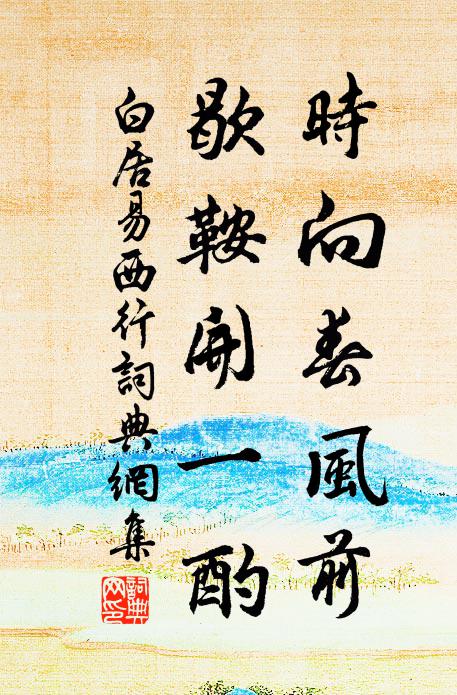 時向春風前
歇鞍開一酌
白居易西行詞典網集